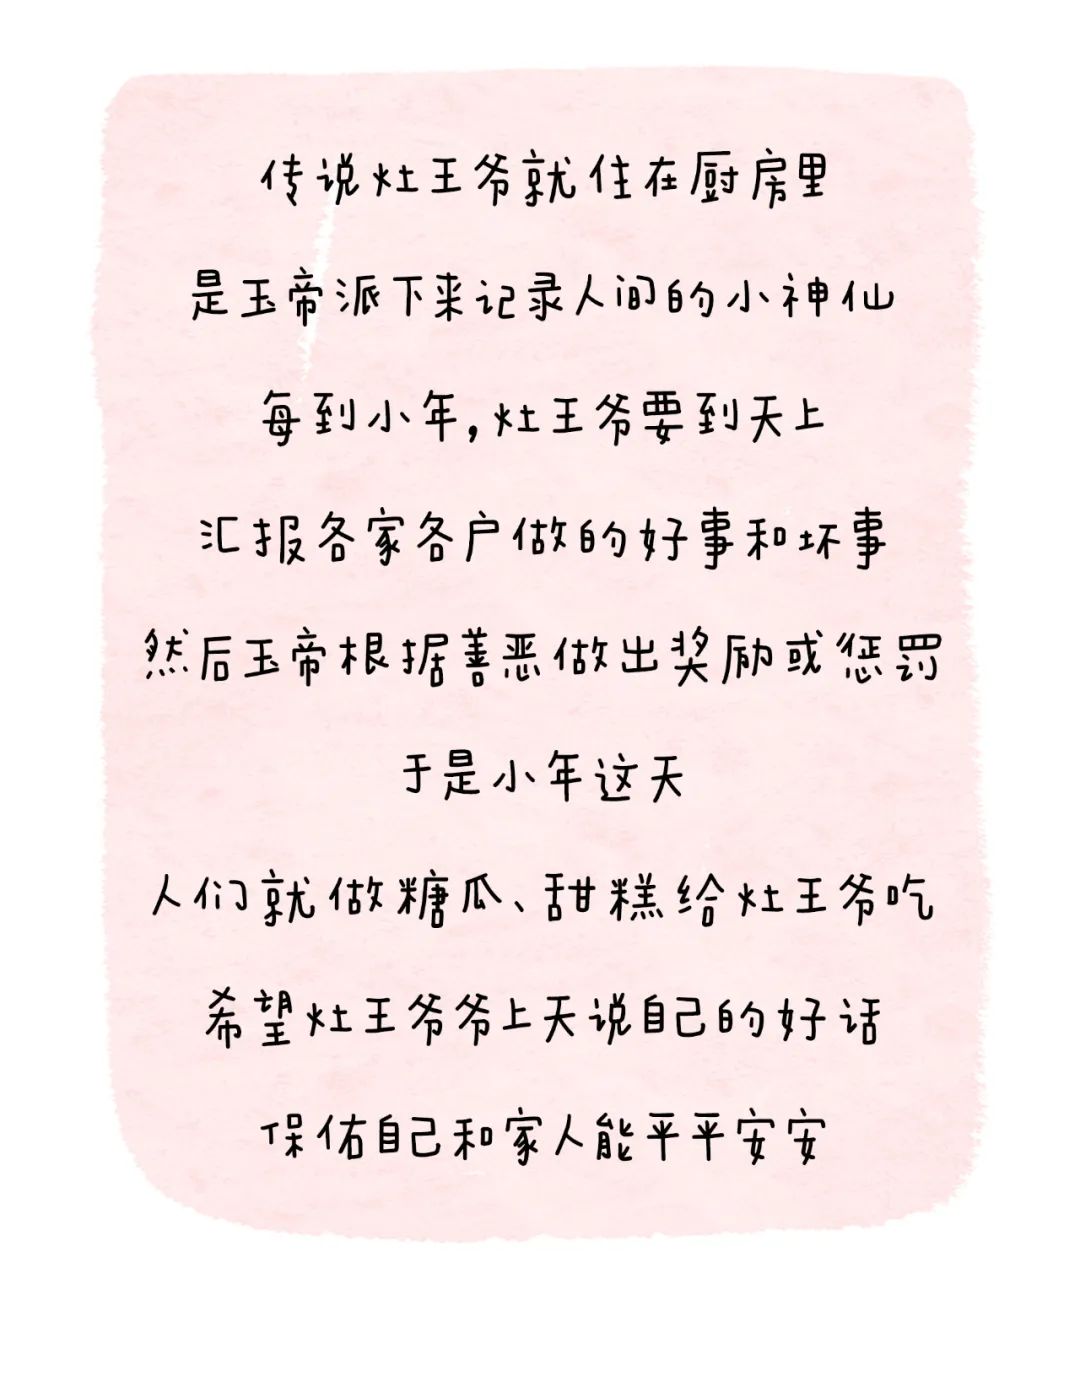 传说灶王爷就住在厨房里
是玉帝派下来记录人间的小神仙
每到小年,灶王爷要到天上
汇报各家各户做的好事和坏事
然后玉帝根据善恶做出奖励或惩罚
于是小年这天
人们就做糖瓜、甜糕给灶王爷吃
希望灶王爷爷上天说自己的好话
保佑自己和家人能平平安安